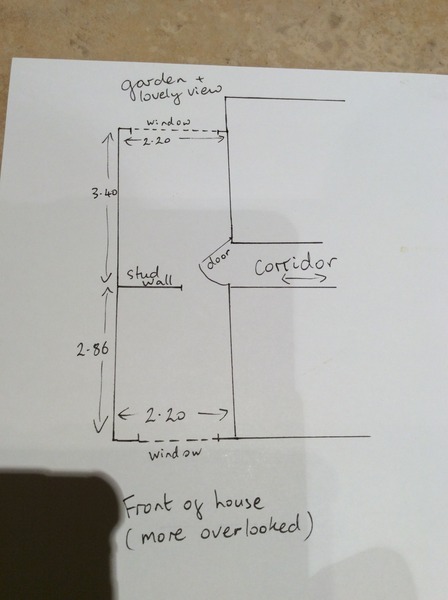 garden +
lovely view
window
2.20
3.40
door
corridor
stud
wall
2.86
2.20
window
Front of house
(more overlooked)